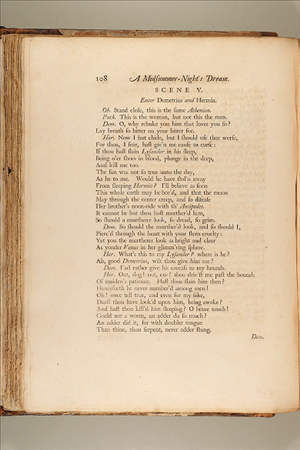 108 A Midsummer-Night's Dream.
SCENE V.
Enter Demetrius and Hermia.
Ob. Stand close, this is the same Athenian.
Puck. This is the woman, but not this the man.
Dem. O, why rebuke you him that loves you so?
Lay breath so bitter on your bitter foe.
Her. Now I but chide, but I should use thee worse;
For thou, I fear, hast giv'n me cause to curse:
If thou hast slain Lysander in his sleep,
Being o'er shoes in blood, plunge in the deep,
And kill me too.
The sun was not so true unto the day,
As he to me. Would he have stol'n away
From sleeping Hermia? I'll believe as soon
This whole earth may be bor'd, and that the moon
May through the center creep, and so displease
Her brother's noon-tide with th' Antipodes.
It cannot be but thou hast murther'd him,
So should a murtherer look, so dread, so grim.
Dem. So should the murther'd look, and so should I,
Pierc'd through the heart with your stern cruelty:
Yet you the murtherer look as bright and clear
As yonder Venus in her glimm'ring sphere.
Her. What's this to my Lysander? where is he?
Ah, good Demetrius, wilt thou give him me?
Dem. I'ad rather give his carcass to my hounds.
Her. Out, dog! out, cur! thou driv'st me past the bounds
Of maiden's patience. Hast thou slain him then?
Henceforth be never number'd among men!
Oh! once tell true, and even for my sake,
Durst thou have look'd upon him, being awake?
And hast thou kill'd him sleeping? O brave touch!
Could not a worm, an adder do so much?
An adder did it, for with doubler tongue
Than thine, thou serpent, never adder stung.
Dem.